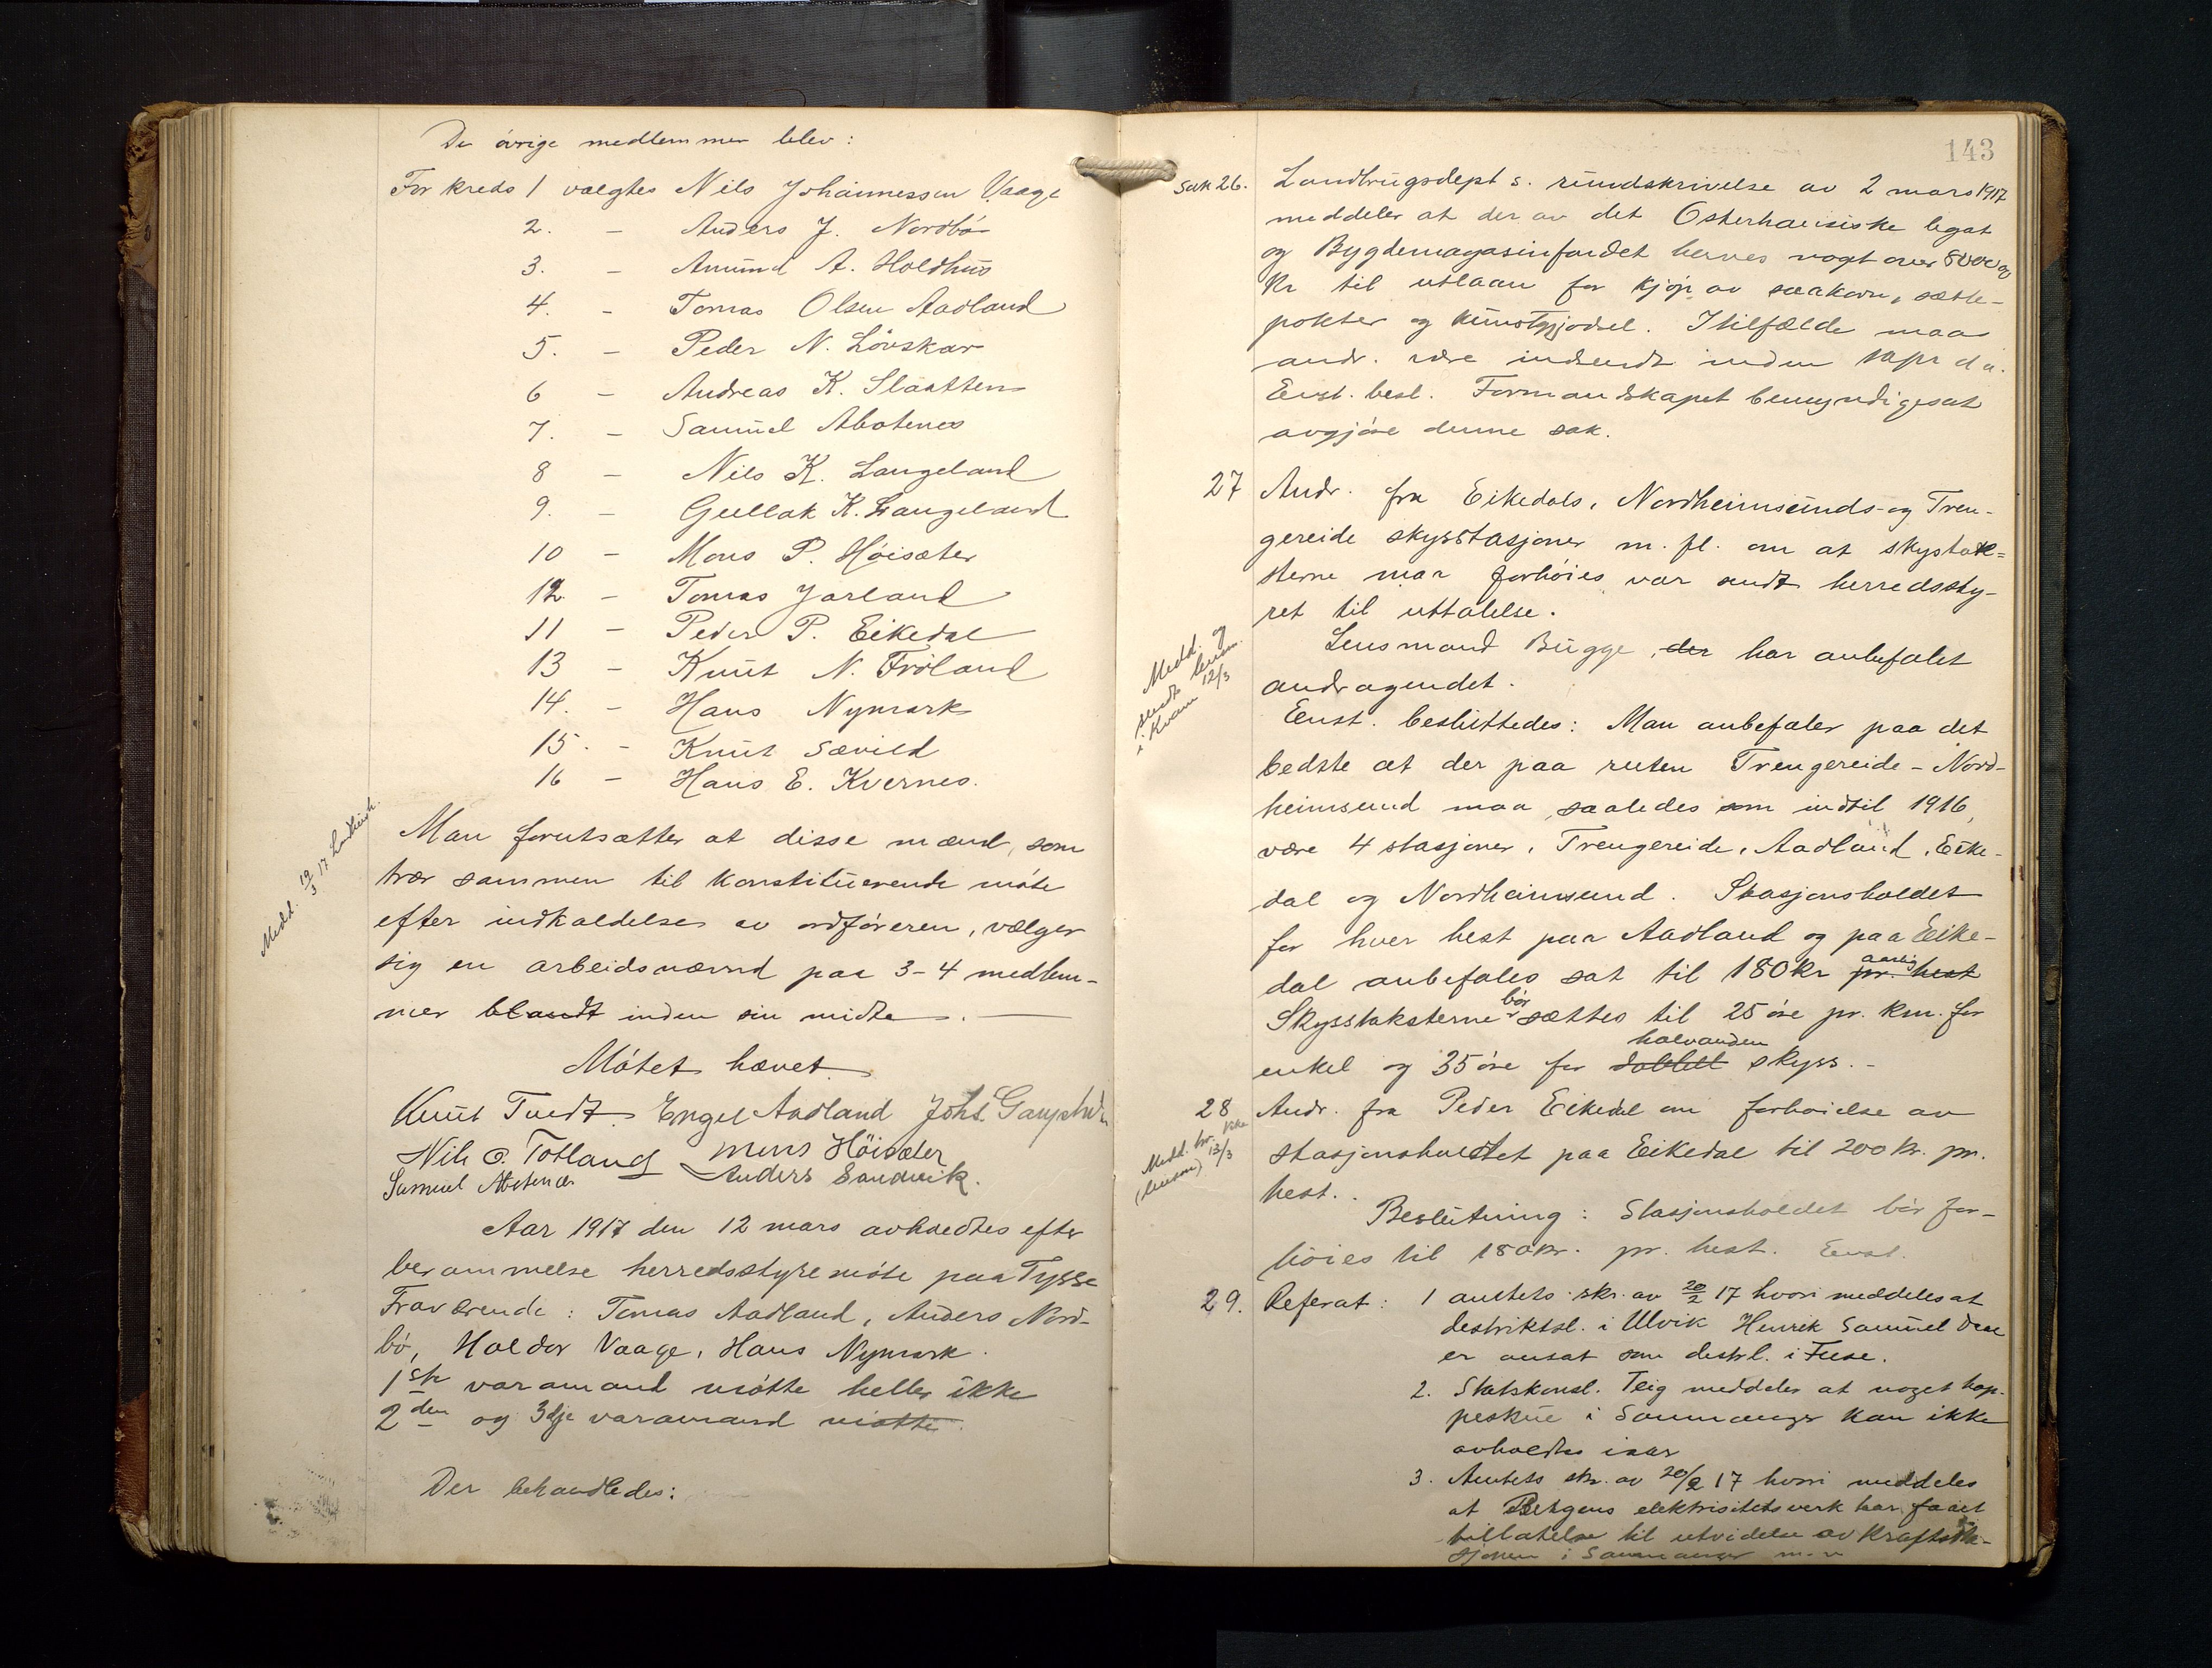 De övrige medlemmer blev:
For kreds 1 valgtes Nils Johannessen Vaage
2. - Anders J. Nordbö
3. - Amund A. Holdhus
4. - Tomas Olsen Aadland
5. - Peder N. Lövskar
6 - Andreas K. Slaatten
7. - Samuel Abotenes
8 - Nils K. Langeland
9. - Gullak K. Langeland
10 - Mons P. Höisæter
12 - Tomas Jarland
11 - Peder P. Eikedal
13 - Knut N. Fröland
14. - Hans Nymark
15. - Knut Sævild
16 - Hans E. Kvernes.
Medd. 19/3 17
Man forutsætter at disse mænd, som
træ sammen til konstituerende möte
efter indkaldelse av ordföreren, vælger
sig en arbeidsnævnd paa 3-4 medlem-
mer blandt inden sin midte. —
Mötet hævet
Knut Tvedt. Engel Aadland Johs.
Nils O. Totland Mons Höisæter
Samuel Abotenes Anders Sandvik.
Aar 1917 den 12 mars avholdtes efter
berammelse herredsstyremöte paa Tysse
Fraværende: Tomas Aadland, Anders Nord-
bö, Haldor Vaage, Hans Nymark.
1ste varamand mötte heller ikke
2den og 3dje varamand mötte
Der behandledes:
143
Sak 26. Landbrugsdept s. rundskrivelse av 2 mars 1917
meddeler at der av det Osterhausiske legat
og Bygdemagasinfondet haves noget over 8000
Kr til utlaan for kjöp av saakorn, sætte-
poteter og kunstgjödsel. I tilfælde maa
andr. være indsendt inden 10 apr d a.
Enst. besl. Formandskapet bemyndiges at
avgjöre denne sak.
27 Andr. fra Eikedals, Nordheimsunds- og Tren-
gereide skysstasjoner m. fl. om at skystak-
sterne maa forhöies var sendt herredssty-
ret til uttalelse.
Medd. og
sendt lensm.
i Kvam 12/3
Lensmand Bugge, der har anbefalet
andragendet.
Enst. besluttedes: Man anbefaler paa det
bedste at der paa ruten Trengereide - Nord-
heimsund maa, saaledes som indtil 1916,
være 4 stasjoner, Trengereide, Aadland, Eike-
dal og Nordheimsund. Stasjonsholdet
for hver hest paa Aadland og paa Eike-
dal anbefales sat til 180 kr pr. hest aarlig
Skysstaksterne bör sættes til 25 öre pr. km. for
enkel og 35 öre for dobbelt halvanden skyss. -
28 Andr. fra Peder Eikedal om forhöielse av
Medd. hr.
12/3
(lensm)
stasjonsholdet paa Eikedal til 200 kr. pr.
hest.
Beslutning: Stasjonsholdet bör for-
höies til 180 kr. pr. hest. Enst.
29. Referat: 1 amtets skr. av 20/2 17 hvori meddeles at
destriktsl. i Ulvik Henrik Samuel
er ansat som destrl. i Fuse.
2. Statskonsl. Teig meddeler at noget hop-
peskue i Samnanger kan ikke
avholdes iaar
3. Amtets skr. av 20/2 17 hvori meddeles
at Bergens elektrisitetsverk har faaet
tillatelse til utvidelse av Kraftsta-
sjonen i Samnanger m. v